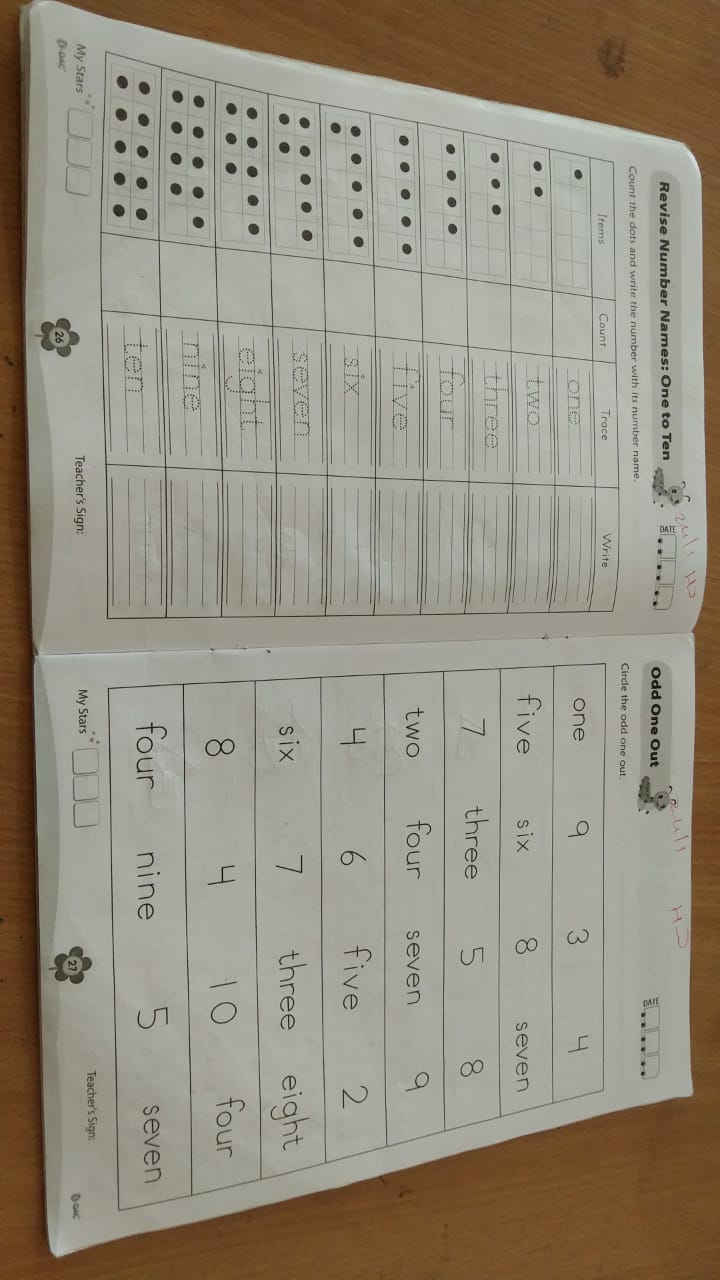 Revise Number Names: One to Ten
DATE
Count the dots and write the number with its number name.
Items Count Trace Write
one
two
three
four
five
six
seven
eight
nine
ten
My Stars
26
Teacher's Sign:
Odd One Out
DATE
Circle the odd one out.
one 9 3 4
five six 8 seven
7 three 5 8
two four seven 9
4 6 five 2
six 7 three eight
8 4 10 four
four nine 5 seven
My Stars
27
Teacher's Sign: